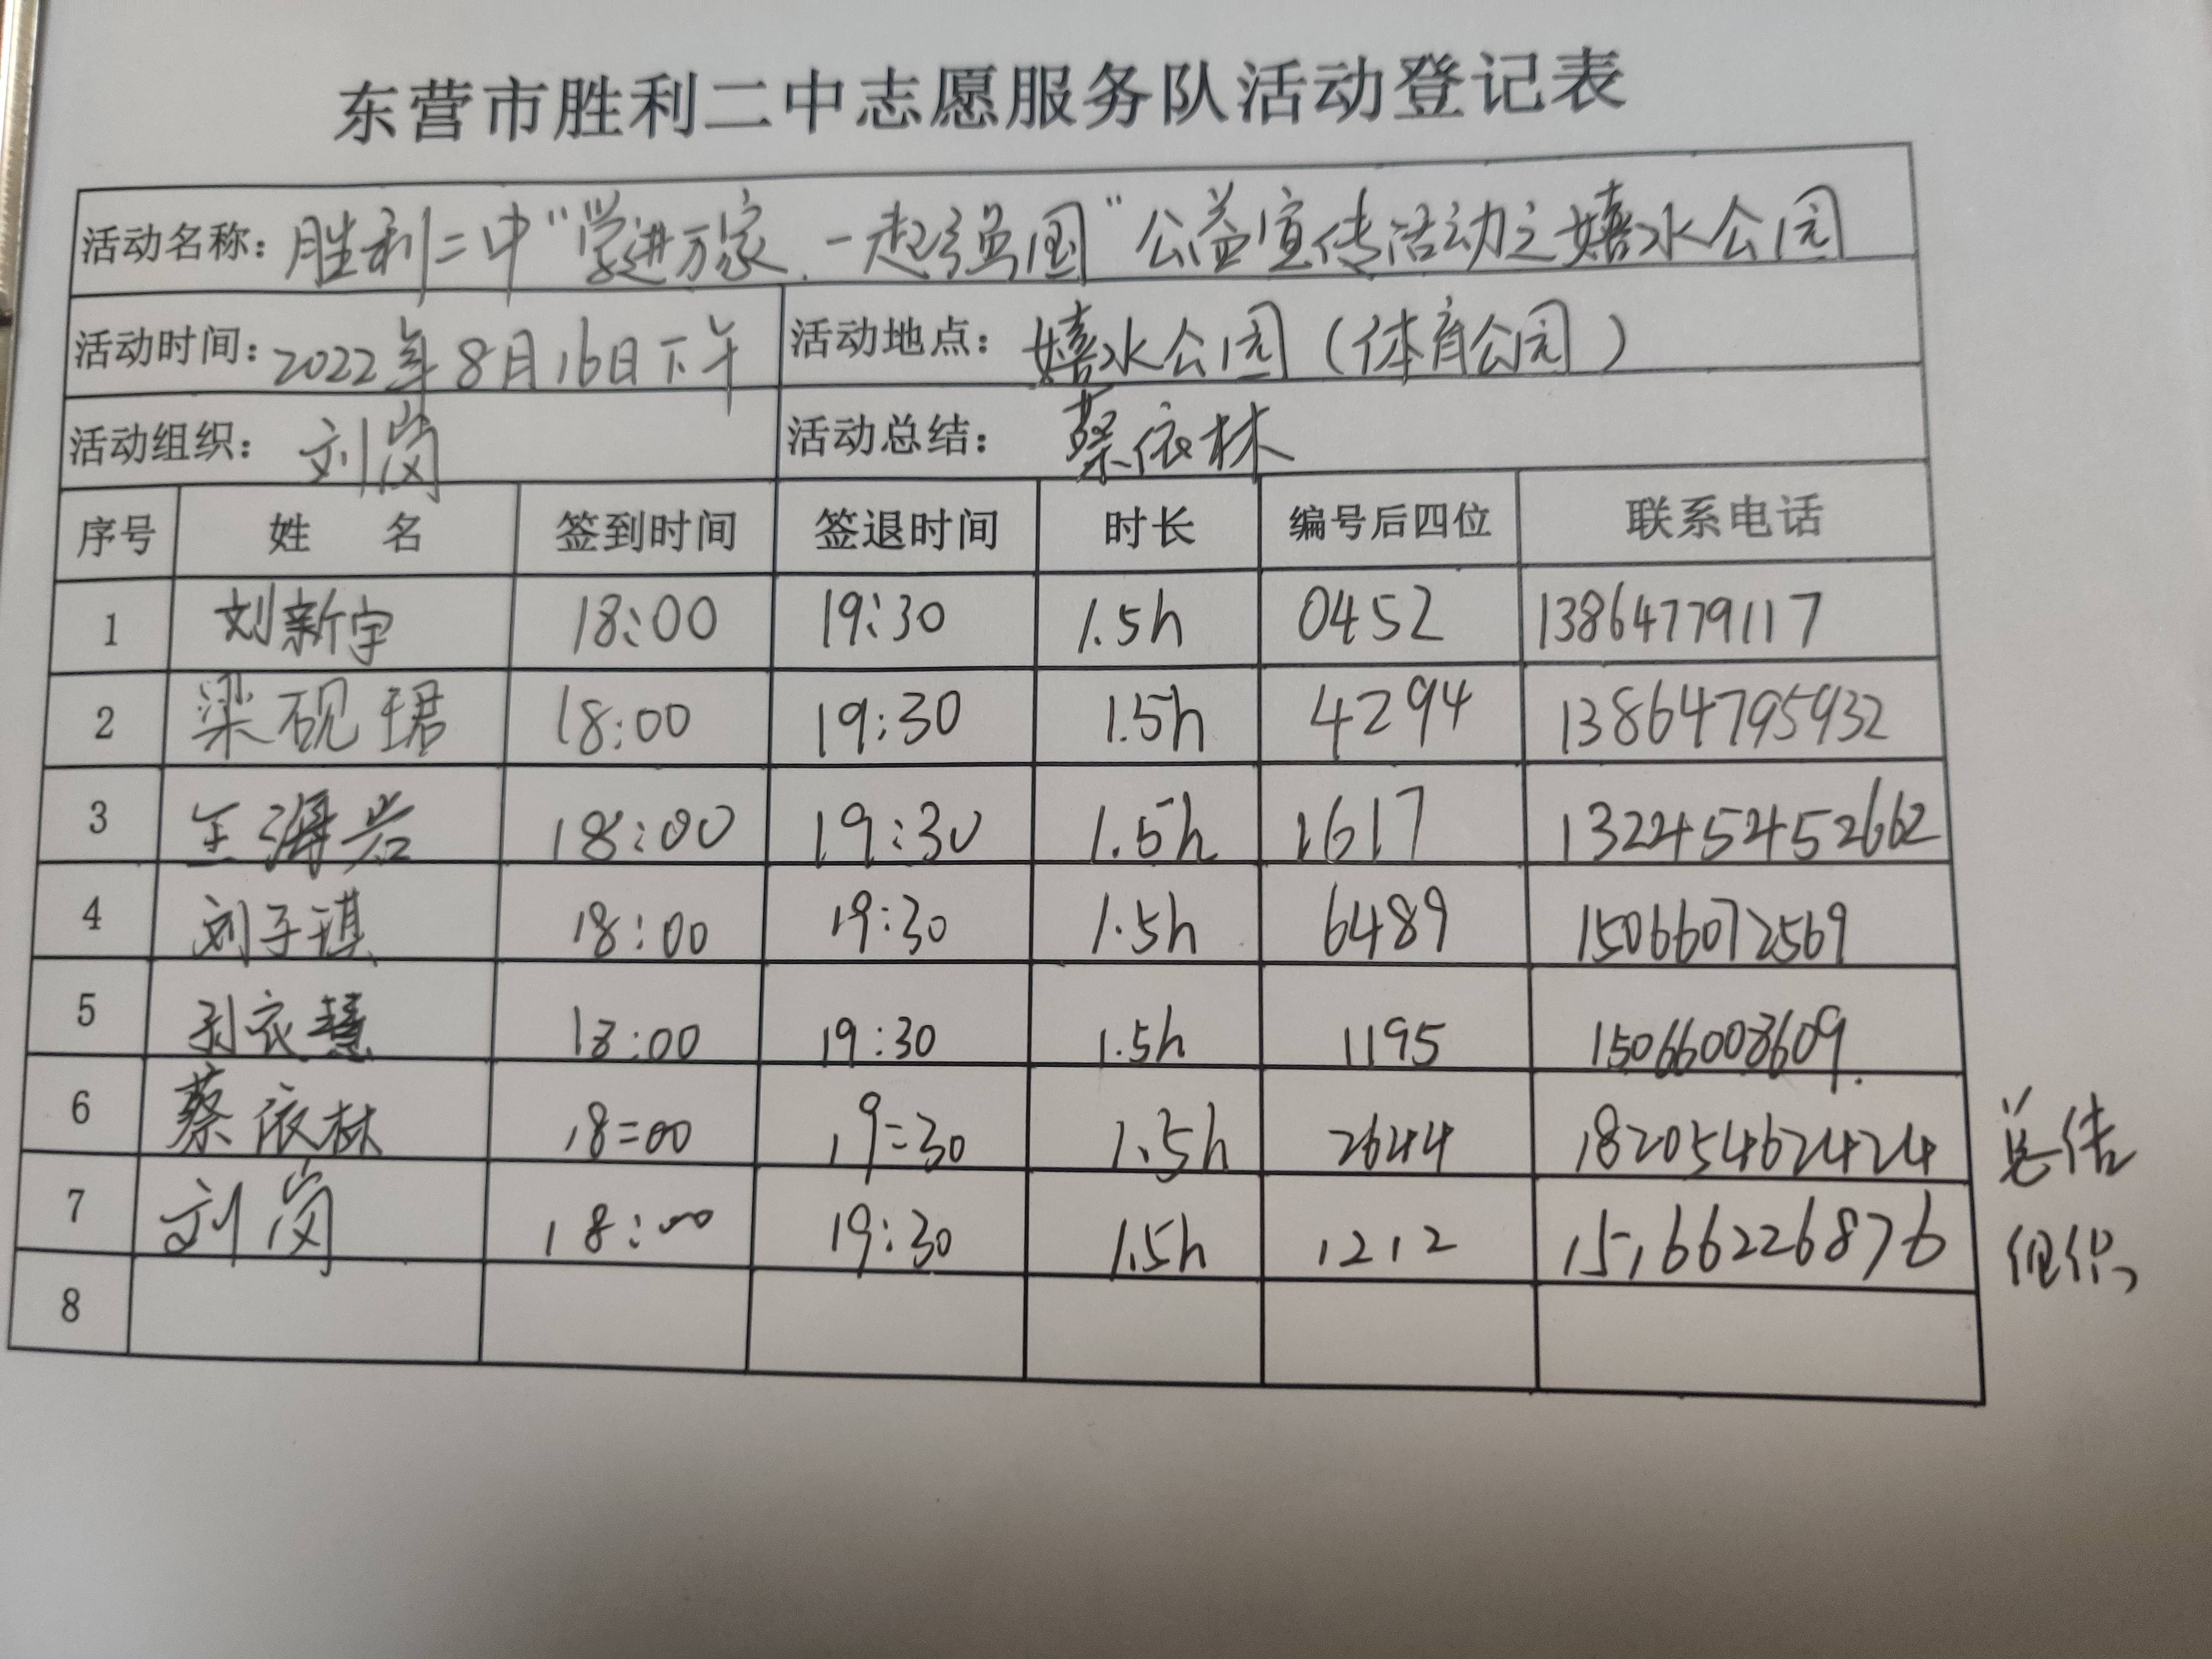 东营市胜利二中志愿服务队活动登记表
活动名称：胜利二中“学进万家、一起强国”公益宣传活动之嬉水公园
活动时间：2022年8月16日下午 活动地点：嬉水公园（体育公园）
活动组织：刘岗 活动总结：蔡依林
序号 姓 名 签到时间 签退时间 时长 编号后四位 联系电话
1 刘新宇 18:00 19:30 1.5h 0452 13864779117
2 梁砚珺 18:00 19:30 1.5h 4294 13864795932
3 王海岩 18:00 19:30 1.5h 1617 13245452662
4 刘子琪 18:00 19:30 1.5h 6489 15066072569
5 衣慧 18:00 19:30 1.5h 1195 15066008609
6 蔡依林 18:00 19:30 1.5h 2644 18205462424 总结
7 刘岗 18:00 19:30 1.5h 1212 15166226876 组织
8